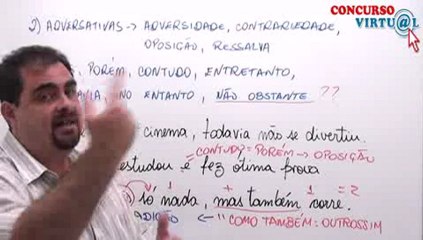 CONCURSO
VIRTU@L
2) ADVERSATIVAS → ADVERSIDADE, CONTRARIEDADE,
OPOSIÇÃO, RESSALVA
, PORÉM, CONTUDO, ENTRETANTO,
, NO ENTANTO, NÃO OBSTANTE ??
cinema, todavia não se divertiu.
= CONTUDO = PORÉM → OPOSIÇÃO
estudou e fez ótima prova
só nada, mas também corre.
1 = 2
ADIÇÃO ← "COMO TAMBÉM = OUTROSSIM